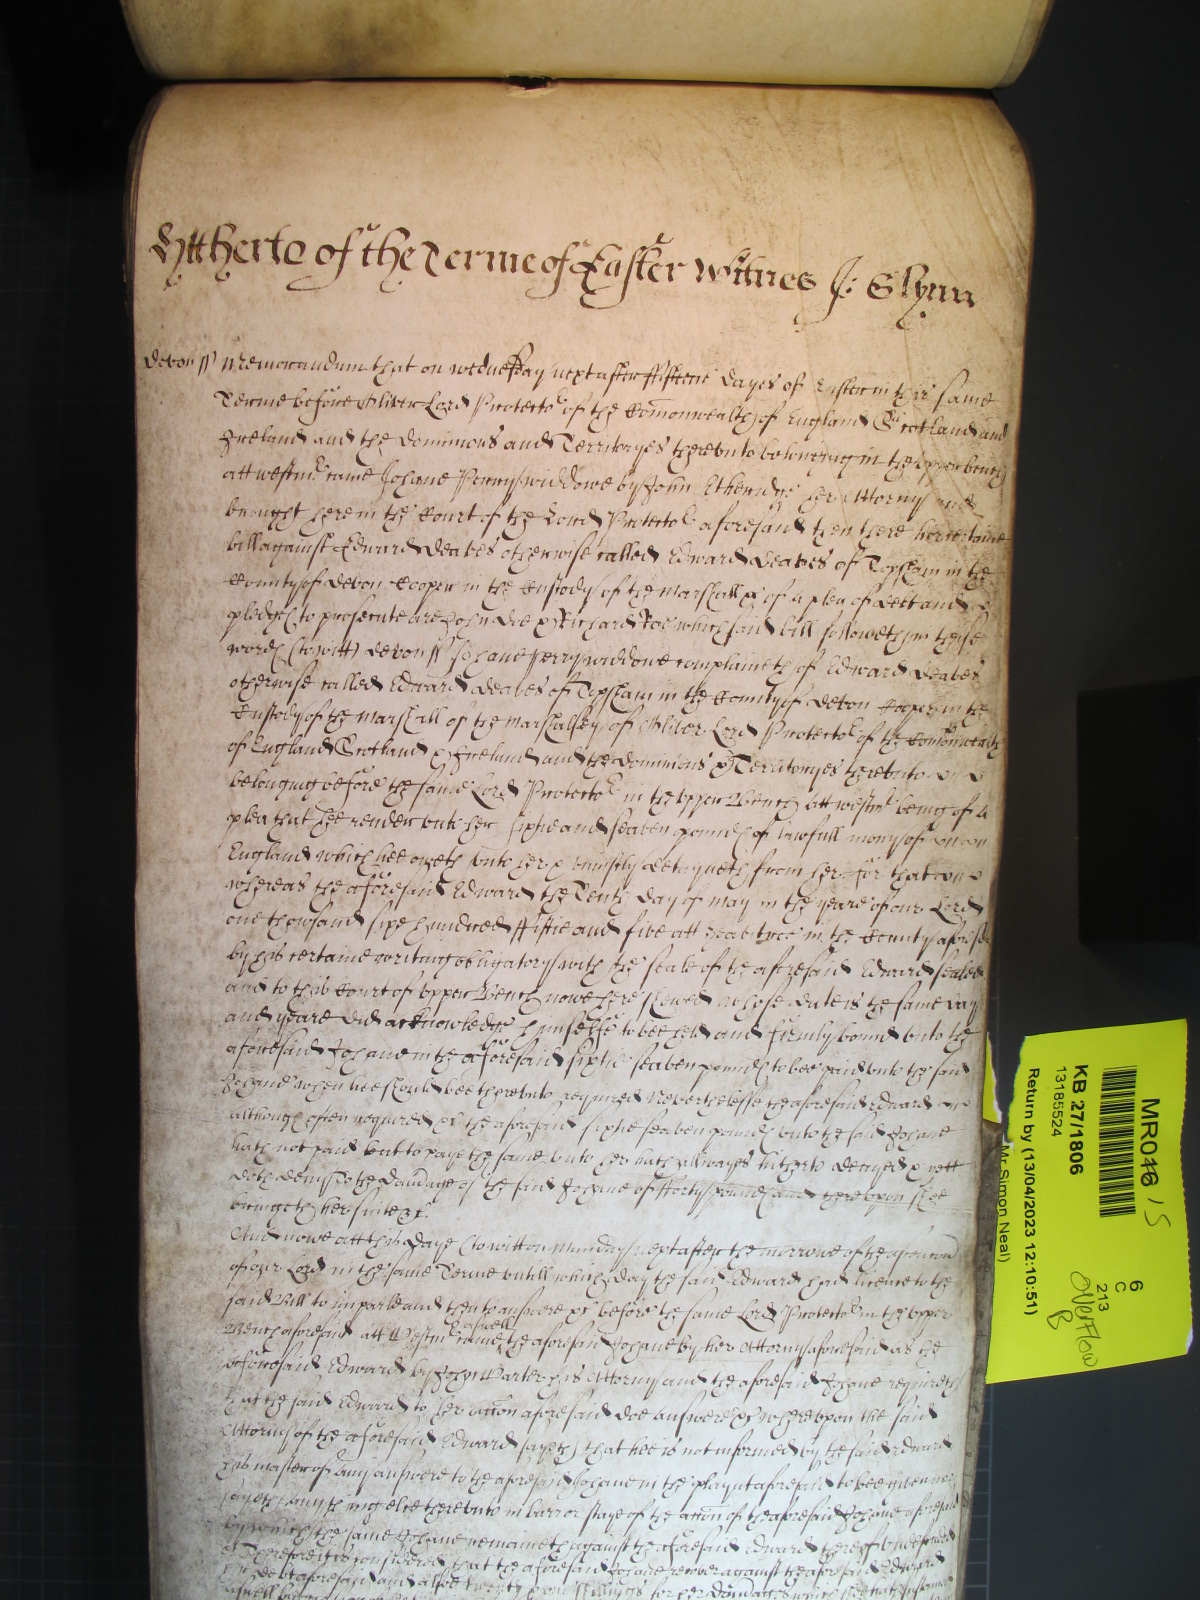 Hittherto of the Terme of Easter Witnes J: Glynn
Devon ss Memorandum that on wednesday next after fifteene dayes of Easter in this same
Terme before Oliver Lord Protector of the Comonwealth of England Scotland and
Ireland and the dominions and Territoryes thereunto belonging in the upper bench
att westmr came Johane Perry widdowe by John Etheridge her Attorny and
brought here in the Court of the Lord Protector aforesaid then there her certaine
bill against Edward Deaves otherwise called Edward Deaves of Topsham in the
County of Devon Cooper in the Custody of the Marshall &c of a plea of debt and
pledges to prosecute are John Doe & Richard Roe which said bill followeth in these
words (to witt) Devon ss Johane Perry widdowe complaineth of Edward Deaves
otherwise called Edward Deaves of Topsham in the County of Devon Cooper in the
Custody of the Marshall of the Marshalsey of Oliver Lord Protector of the Comonwealth
of England Scotland & Ireland and the dominions & Territoryes thereunto
belonging before the same Lord Protector in the upper Bench att westmr being of a
plea that hee render unto her sixtie and seaven pounds of lawfull mony of
England which hee oweth unto her & uniustly detayneth from her for that
whereas the aforesaid Edward the Tenth day of may in the yeare of our Lord
one thowsand sixe hundred fiftie and five att in the County aforesd
by his certaine writing obligatory with the seale of the aforesaid Edward sealed
and to this Court of upper Bench nowe here shewed whose date is the same day
and yeare did acknowledge himselfe to bee held and firmly bound unto the
aforesaid Johane in the aforesaid sixtie seaven pounds to bee paid unto the said
Johane when hee should bee thereunto required Neverthelesse the aforesaid Edward
although often required &c the aforesaid sixtie seaven pounds unto the said Johane
hath not paid but to paye the same unto her hath allwayes hitherto denyed & yett
doth deny To the damage of the said Johane of fforty pounds and thereupon shee
bringeth her suite &c
And nowe att this daye (to witt) on Munday next after the morrowe of the ascencon
of our Lord in the same Terme untill which day the said Edward had licence to the
said Bill to imparle and then to answere &c before the same Lord Protector in the upper
Bench aforesaid att Westmr came aswell the aforesaid Johane by her Attorny aforesaid as the
aforesaid Edward by John Carter his Attorny and the aforesaid Johane requireth
that the said Edward to her accon aforesaid doe answere &c whereupon the said
Attorny of the aforesaid Edward sayeth that hee is not informed by the said Edward
his master of any answere to the aforesaid Johane in the playnt aforesaid to bee given nor
sayeth any thing else thereunto in barr or staye of the accon of the aforesaid Johane aforesaid
by which the same Johane remaineth against the aforesaid Edward thereof undefended
Therefore it is considered that the aforesaid Johane recover against the aforesaid Edward
her debt aforesaid and alsoe twenty shillings for her damages which shee hath susteined
MR016 15
KB 27/1806
13185524
Return by (13/04/2023 12:10:51)
Mr Simon Neal)
6
C
213
Overflow
B